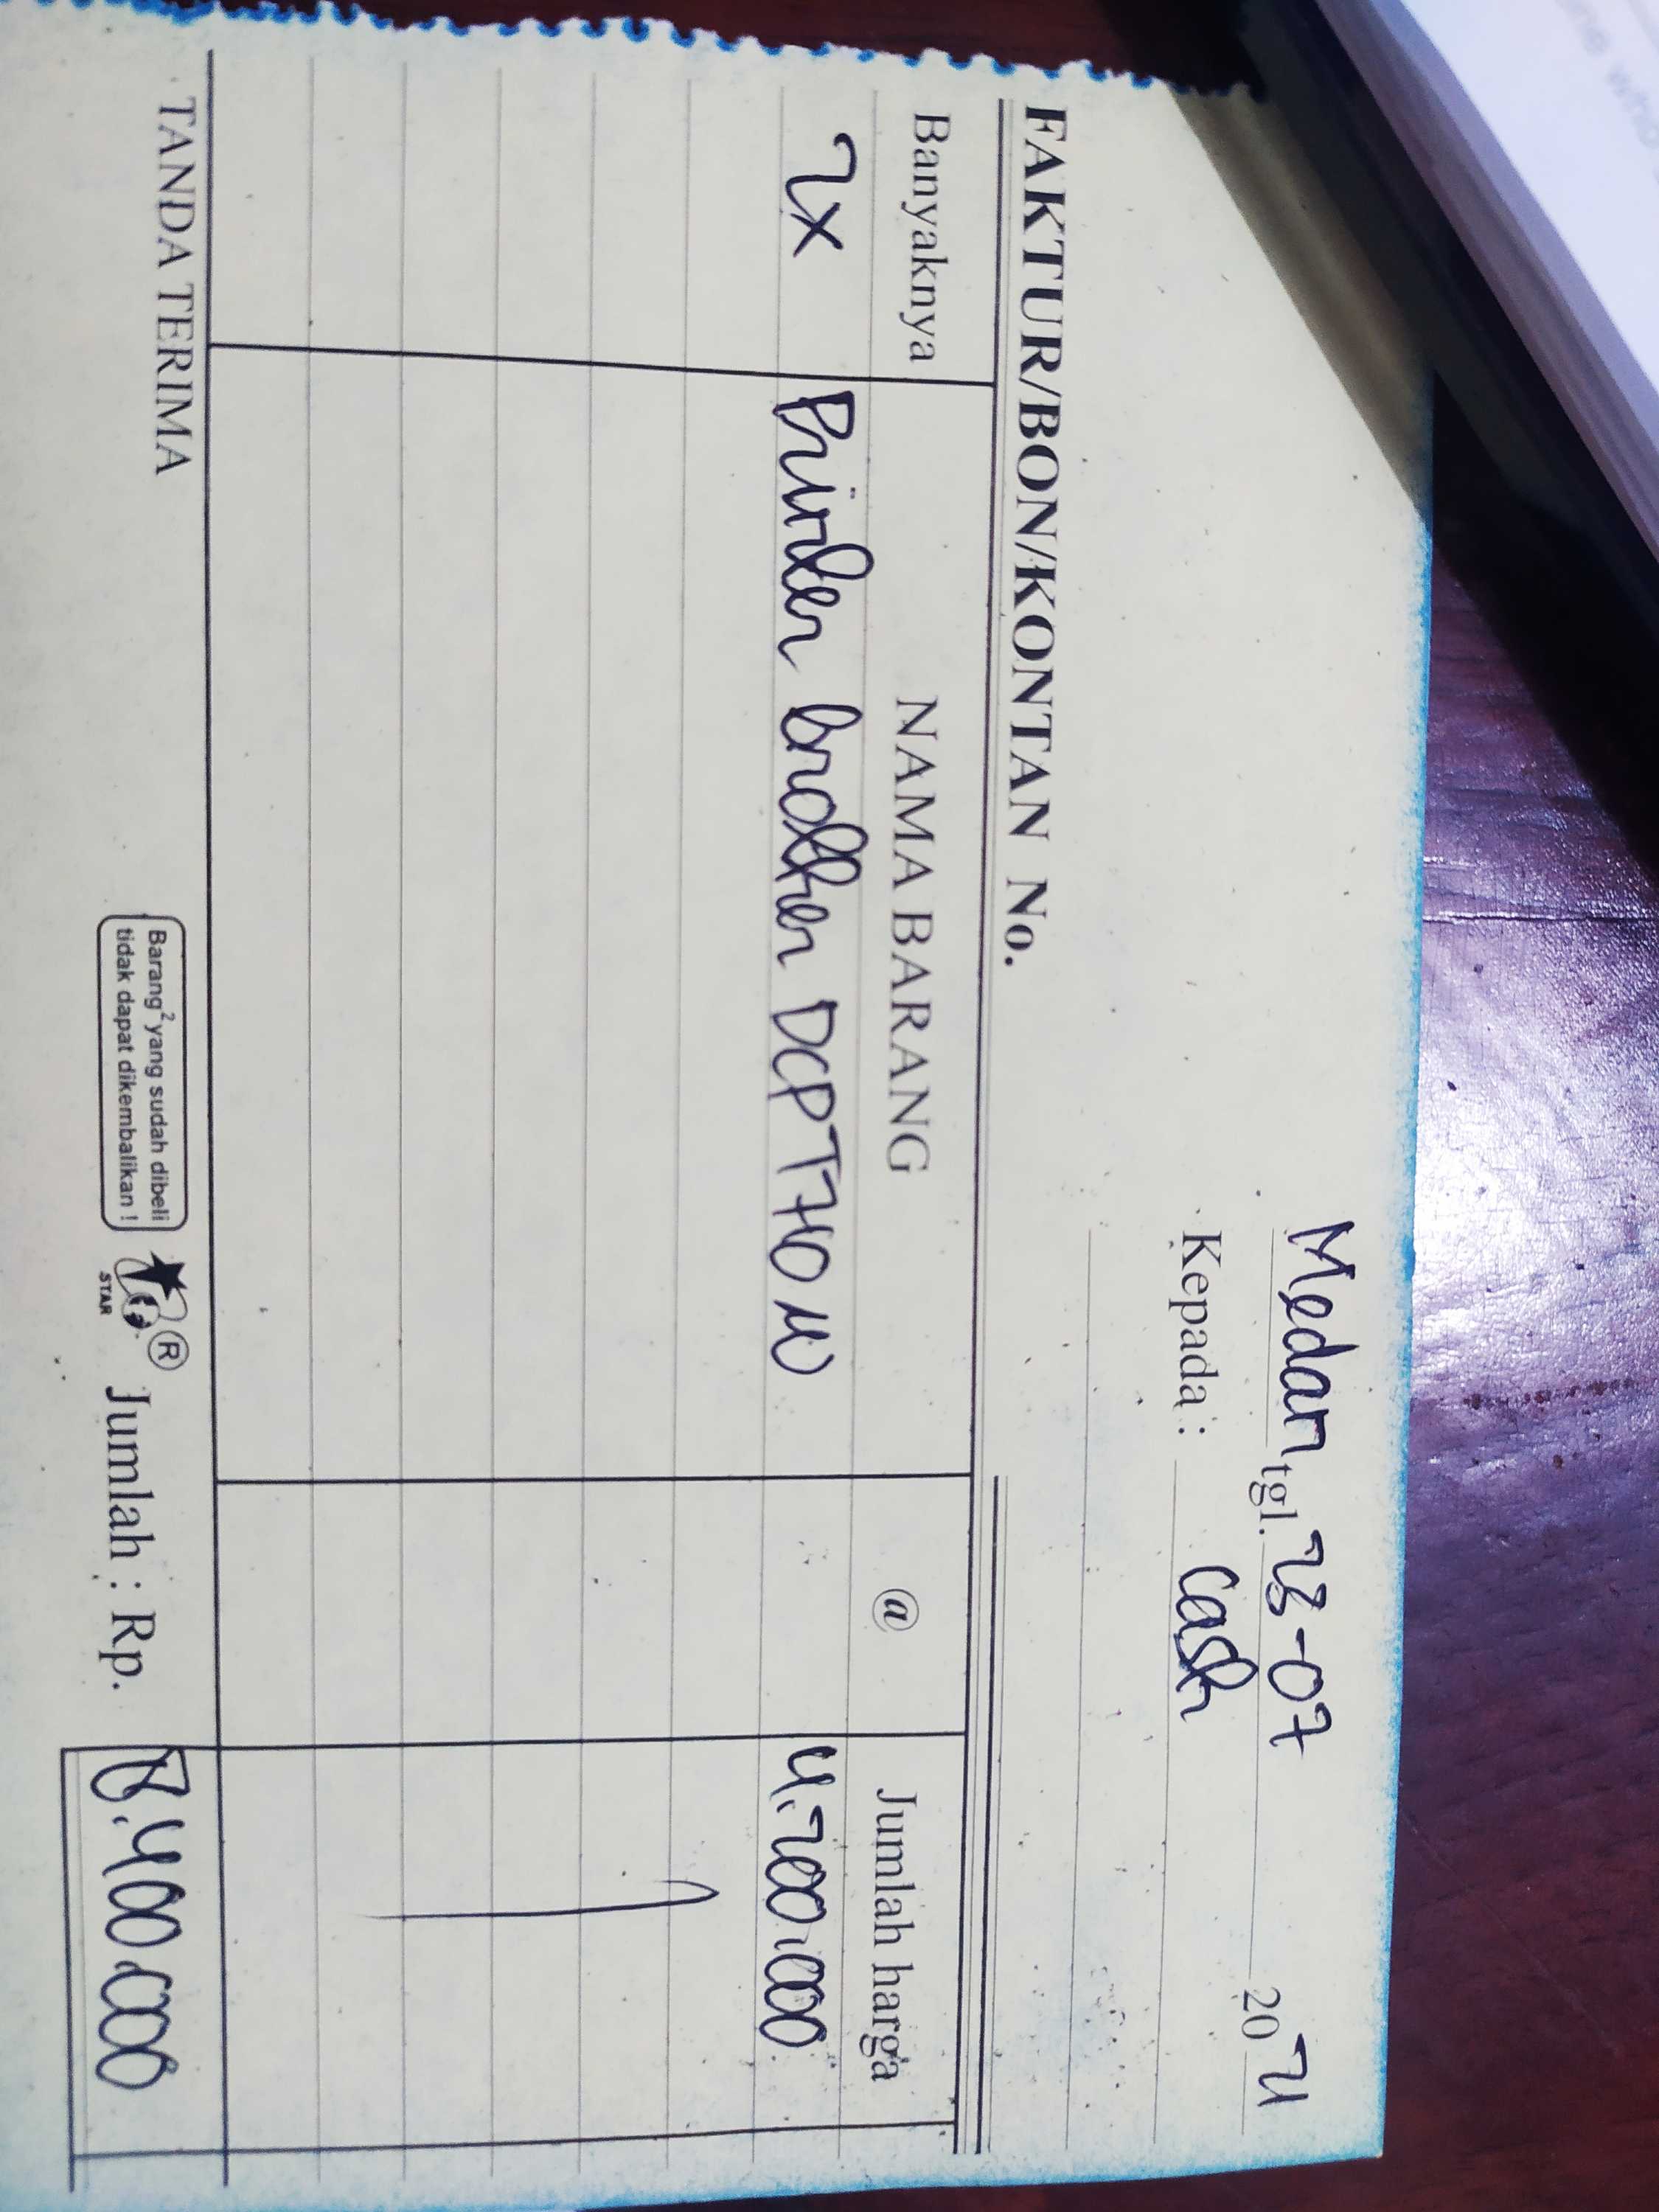 Medan tgl. 23-07 2024
Kepada : Cash
FAKTUR/BON/KONTAN No.
Banyaknya NAMA BARANG @ Jumlah harga
2x Printer brother DCPT710W 4.200.000
TANDA TERIMA
Barang² yang sudah dibeli
tidak dapat dikembalikan !
STAR ®
Jumlah : Rp. 8.400.000